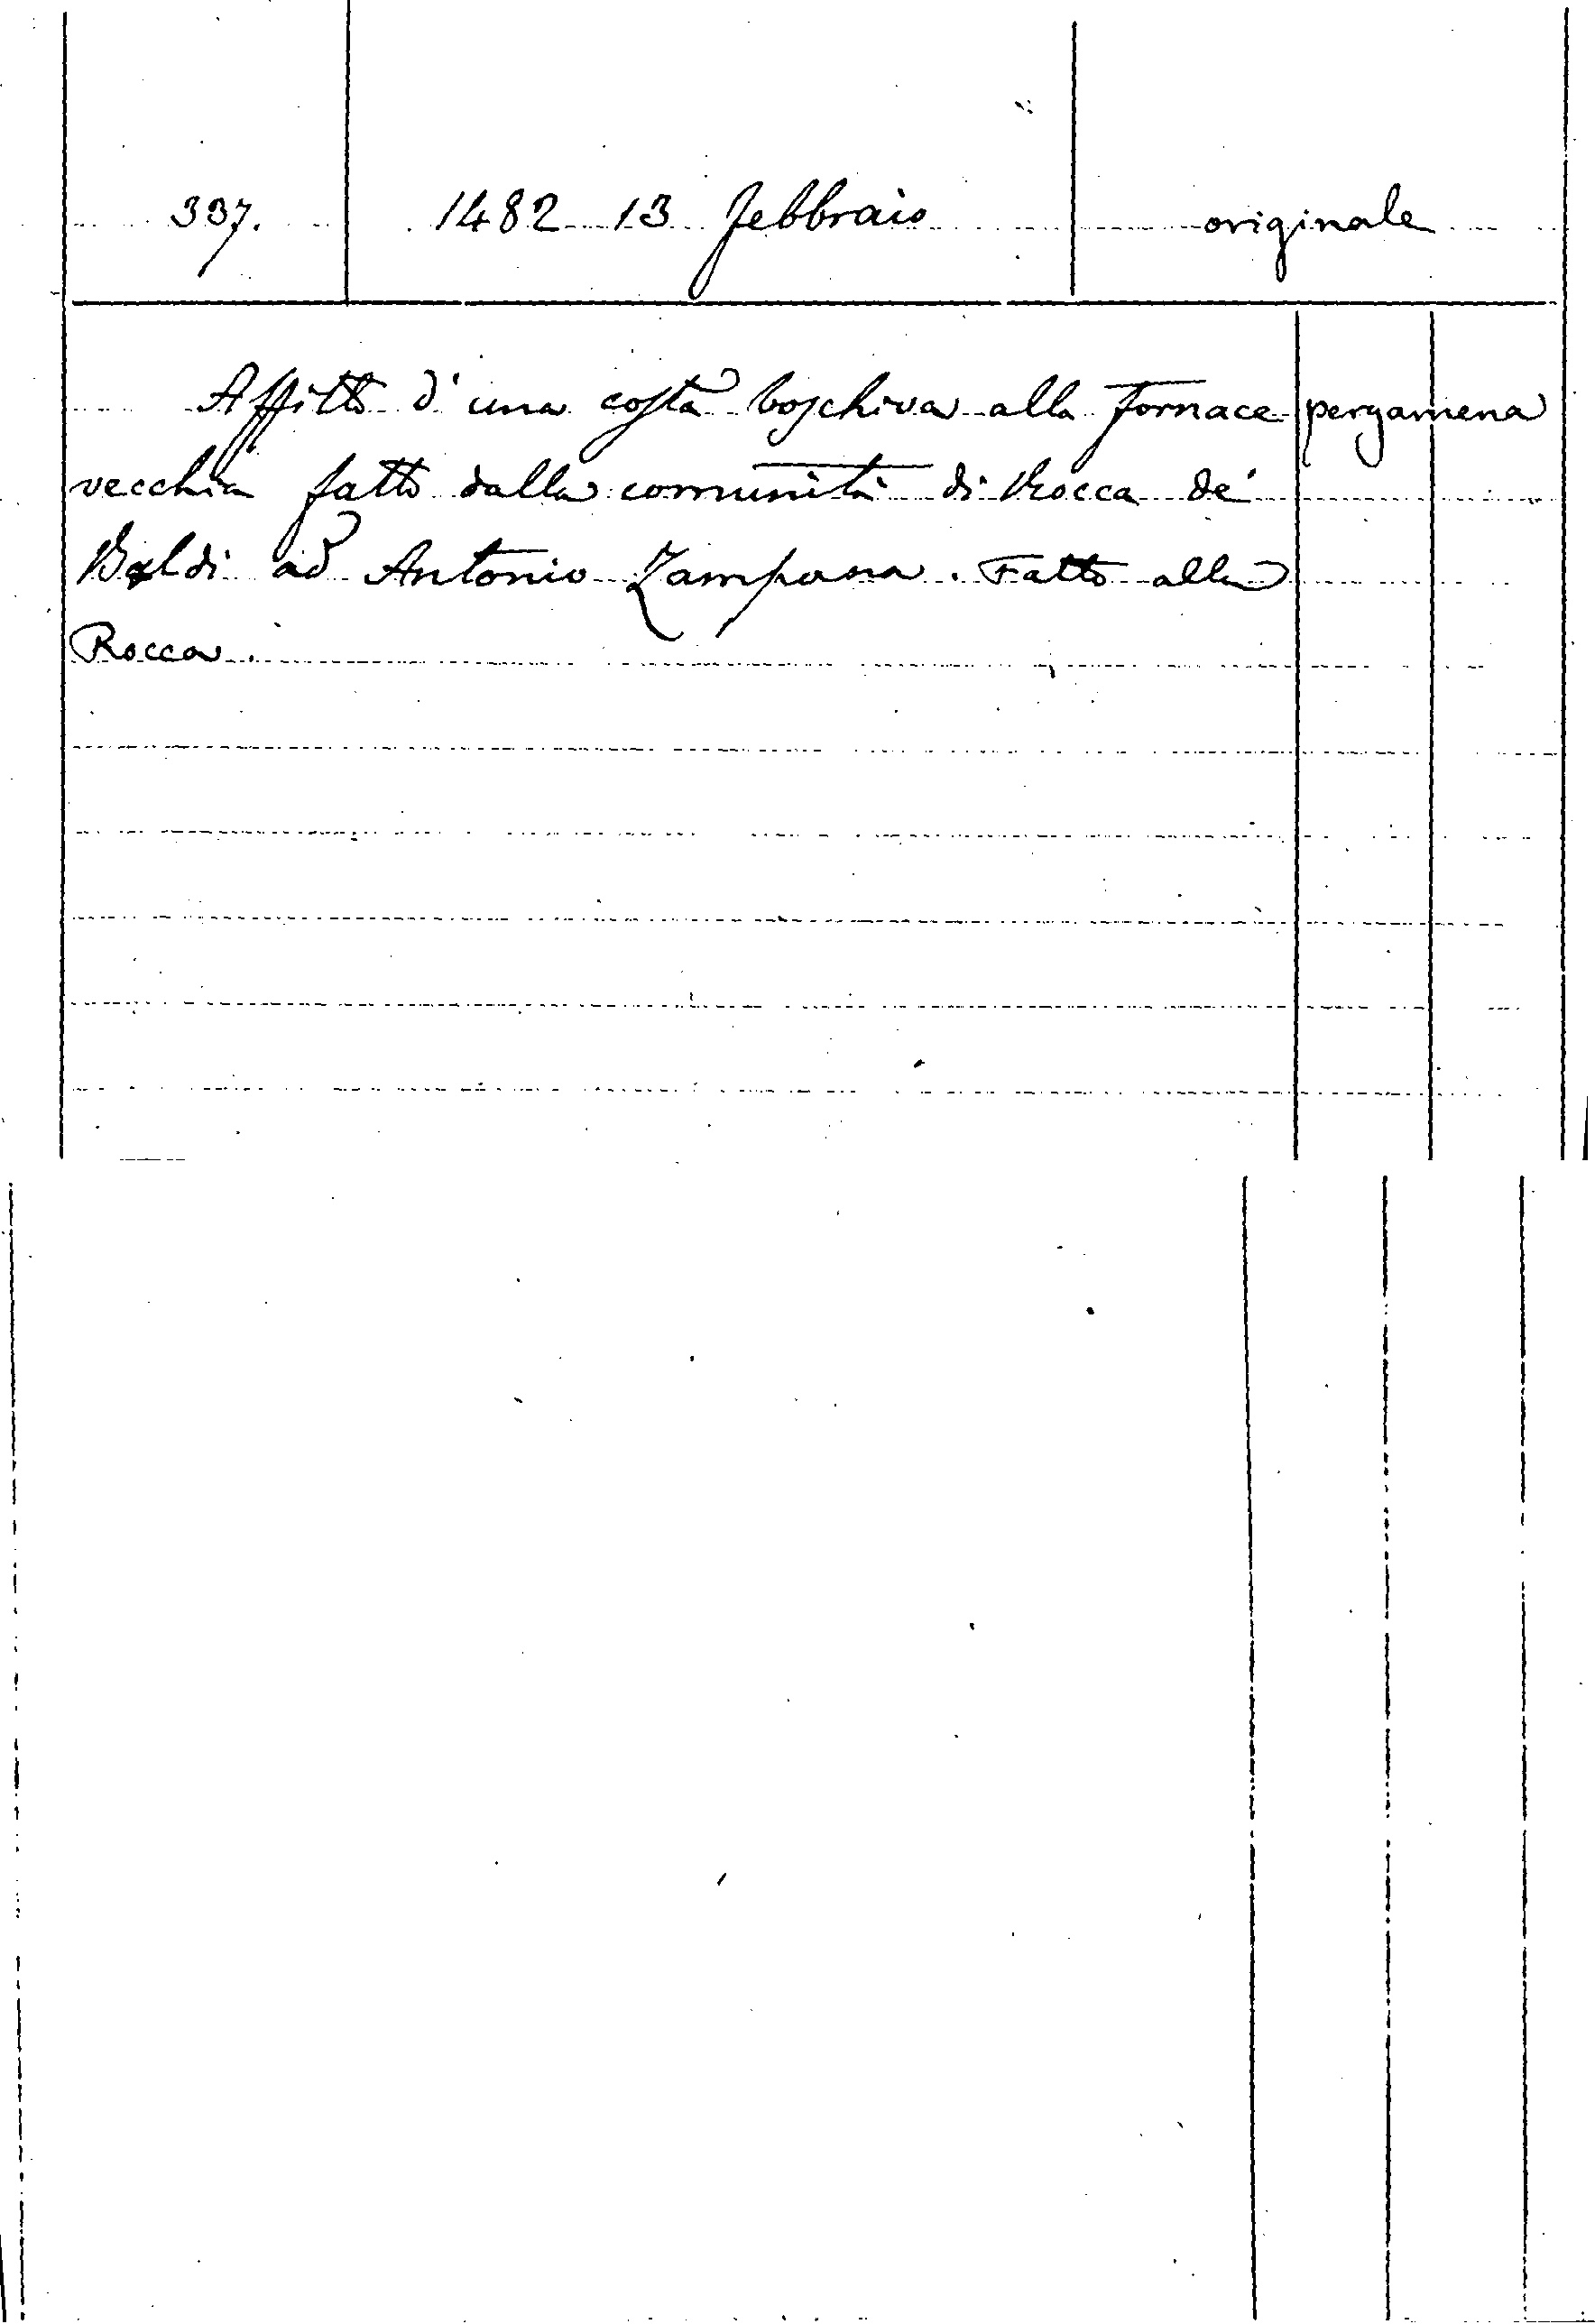 337. 1482 13 febbraio originale
Affitto d'una costa boschiva alla Fornace pergamena
vecchia fatto dalla comunità di Rocca de'
Baldi ad Antonio Zampana. Fatto alla
Rocca.